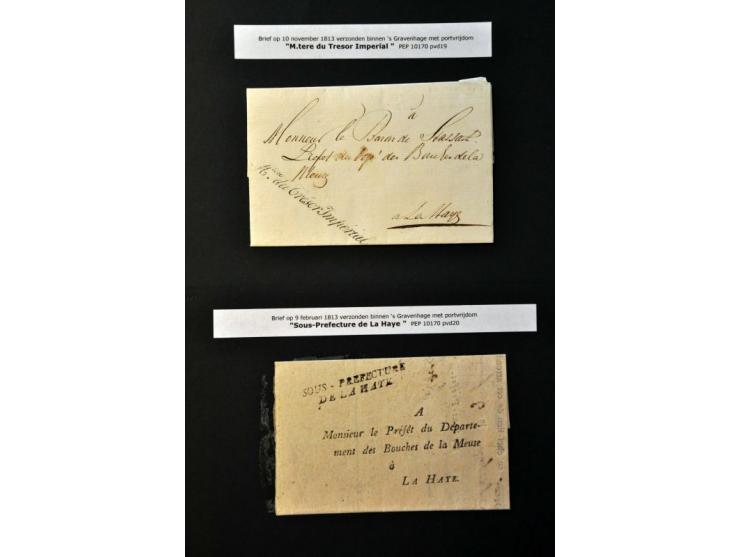 Brief op 10 november 1813 verzonden binnen 's Gravenhage met portvrijdom
"M.tere du Tresor Imperial " PEP 10170 pvd19
à
Monsieur le Baron de Stassart
Préfet du Dept des Bouches de la
Meuse
Mtere du Trésor Impérial
a La Haye
Brief op 9 februari 1813 verzonden binnen 's Gravenhage met portvrijdom
"Sous-Prefecture de La Haye " PEP 10170 pvd20
SOUS - PREFECTURE
DE LA HAYE
A
Monsieur le Préfêt du Départe-
ment des Bouches de la Meuse
à
LA HAYE.